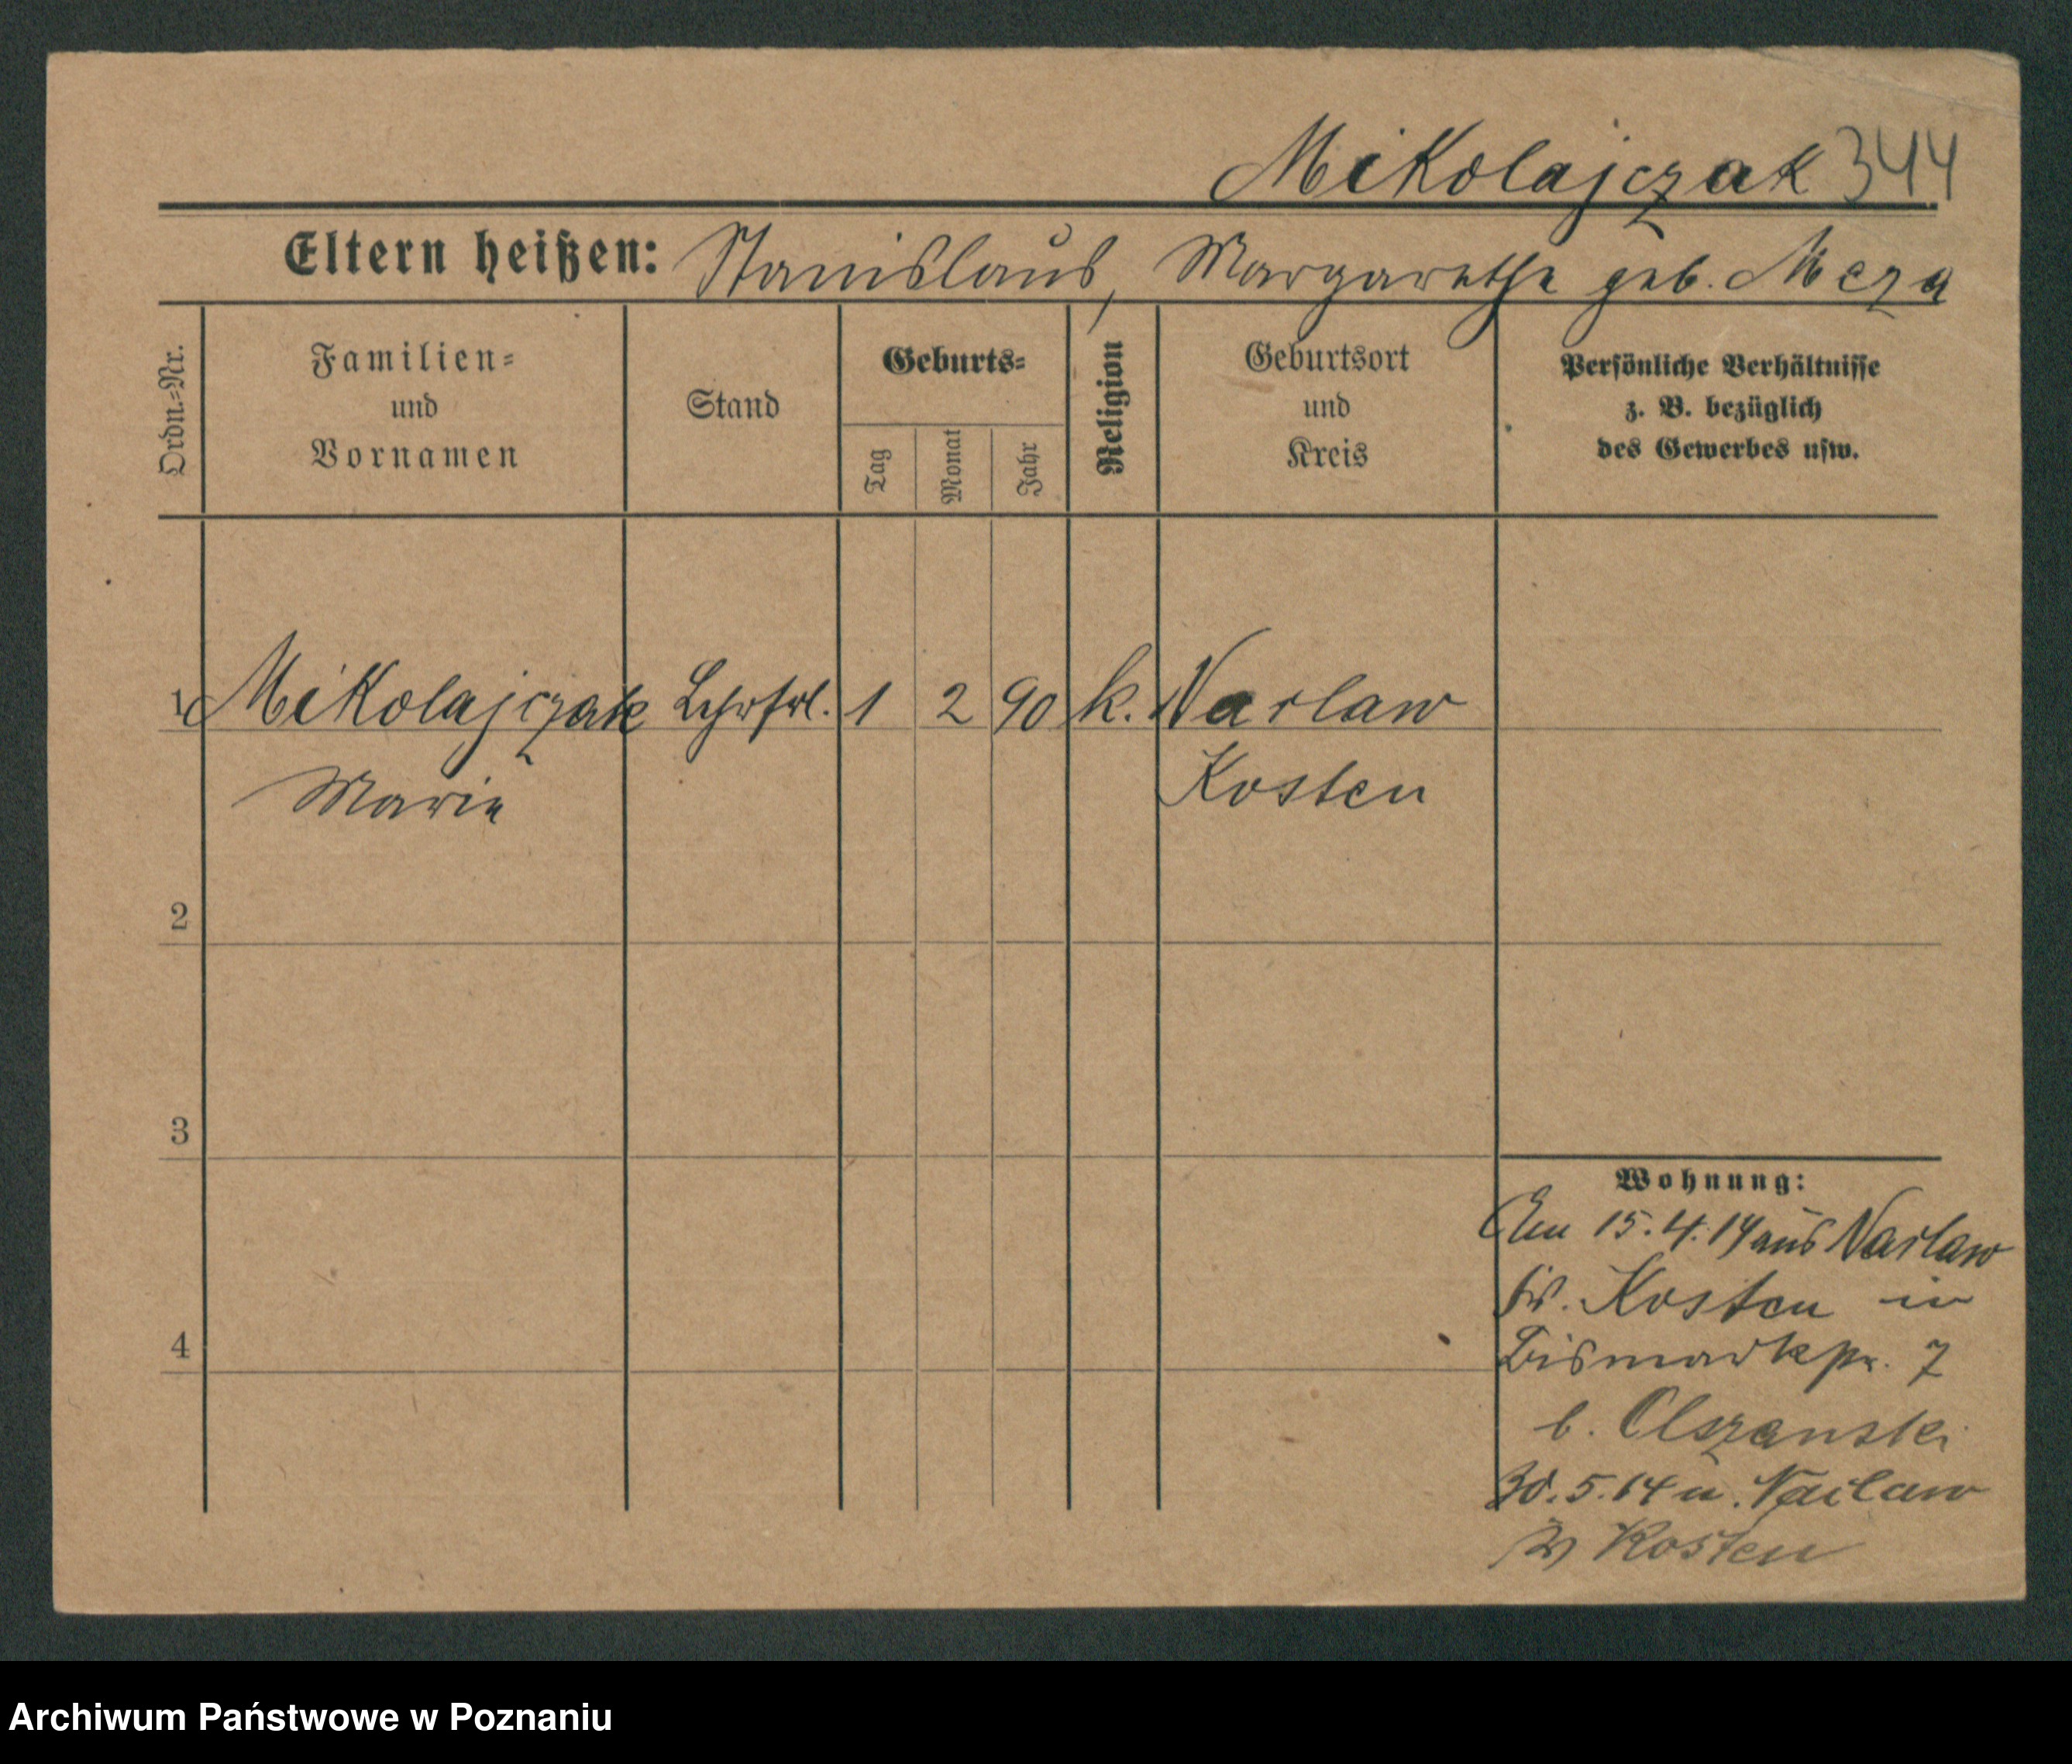 Mikolajczak 344
Eltern heißen: Stanislaus, Margarethe geb. Meza
Ordn.-Nr.
Familien-
und
Vornamen
Stand
Geburts-
Tag
Monat
Jahr
Religion
Geburtsort
und
Kreis
Persönliche Verhältnisse
z. B. bezüglich
des Gewerbes usw.
1 Mikolajczak Lehrfrl. 1 2 90 k. Narlaw
Marie Kosten
2
3
4
Wohnung:
Am 15.4.14 aus Narlaw
Kr. Kosten in
Bismarkpr. 7
b. Olszanski
30.5.14 n. Nailaw
Kosten
Archiwum Państwowe w Poznaniu